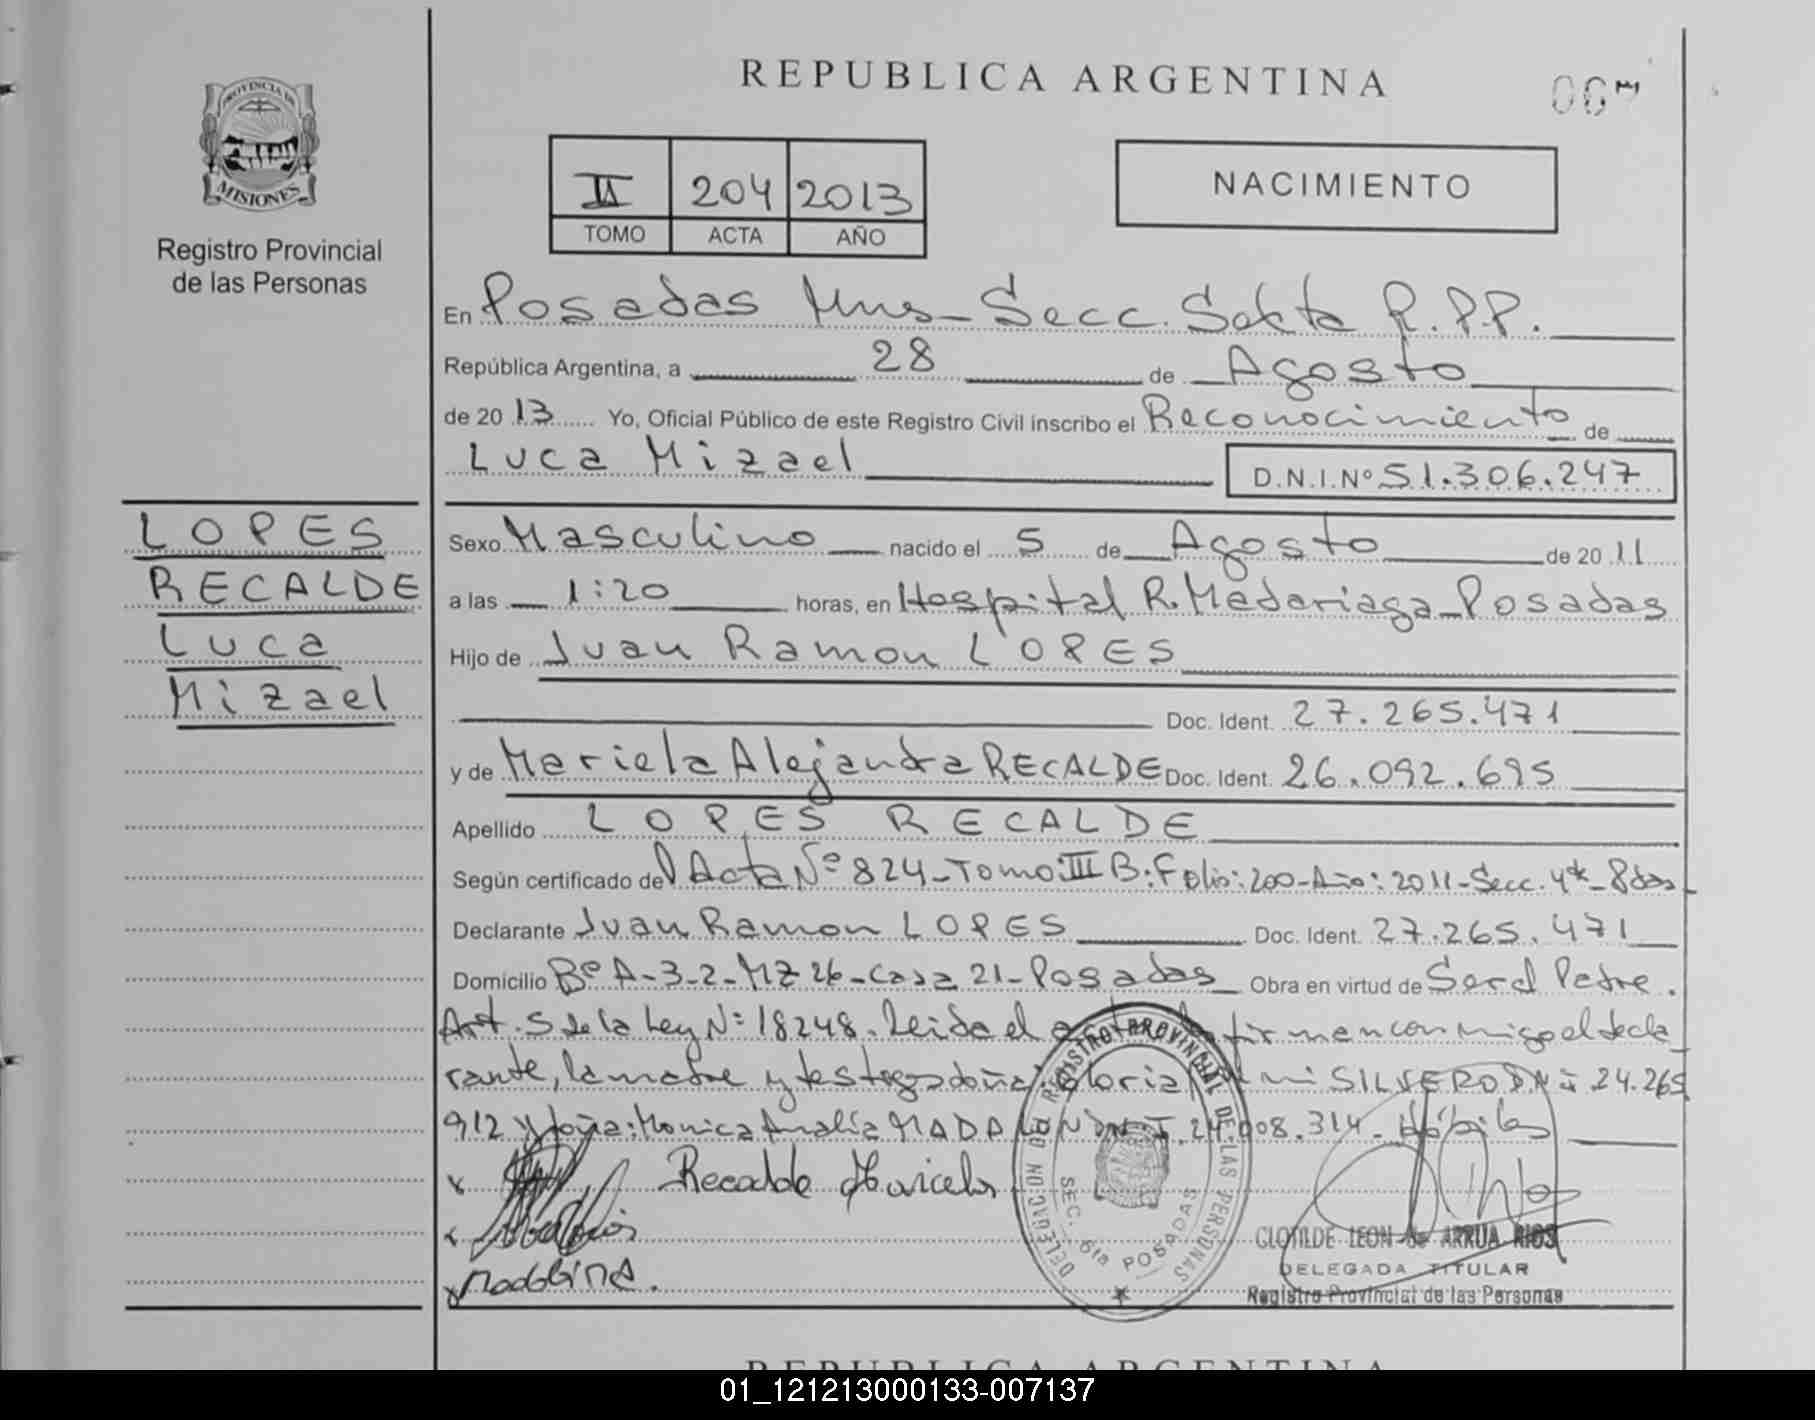 REPUBLICA ARGENTINA
PROVINCIA DE
MISIONES
Registro Provincial
de las Personas
II 204 2013
TOMO ACTA AÑO
NACIMIENTO
En Posadas Mns - Secc. Sexta R.P.P.
República Argentina, a 28 de Agosto
de 2013 Yo, Oficial Público de este Registro Civil inscribo el Reconocimiento de
Luca Mizael D.N.I.Nº 51.306.247
LOPES
RECALDE
Luca
Mizael
Sexo Masculino nacido el 5 de Agosto de 2011
a las 1:20 horas, en Hospital R. Madariaga - Posadas
Hijo de Juan Ramon LOPES
Doc. Ident. 27.265.471
y de Mariela Alejandra RECALDE Doc. Ident. 26.092.695
Apellido LOPES RECALDE
Según certificado del Acta Nº 824 - Tomo: III B: Folio: 200 - Año: 2011 - Secc. 4ta - Pdas -
Declarante Juan Ramon LOPES Doc. Ident. 27.265.471
Domicilio Bº A-3-2 - MZ 26 - Casa 21 - Posadas Obra en virtud de Ser el Padre.
Art. 5 de la Ley Nº 18248. Leida el acta la firman conmigo el decla
rante, la madre y testigos doña: Gloria SILVERO DNI 24.265
912 y doña: Monica Analía D.N.I. 24.008.314 - Hábiles
Recalde Mariela
DELEGACION DEL REGISTRO PROVINCIAL DE LAS PERSONAS
SEC. 6ta POSADAS
CLOTILDE LEON de ARRUA RIOS
DELEGADA TITULAR
Registro Provincial de las Personas
REPUBLICA ARGENTINA
01_121213000133-007137